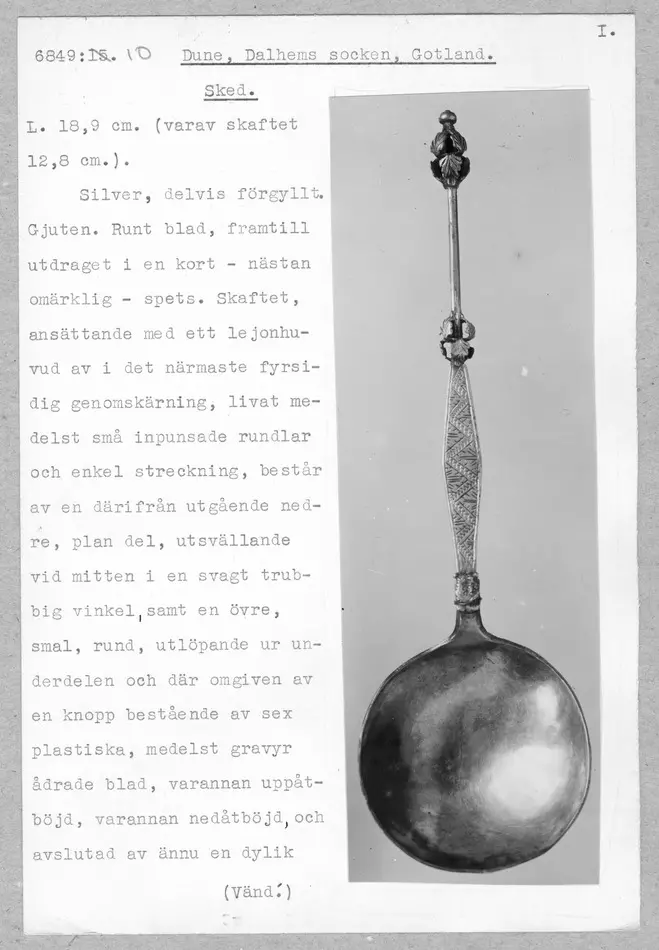 I.
6849:15. 10 Dune, Dalhems socken, Gotland.
Sked.
L. 18,9 cm. (varav skaftet
12,8 cm.).
Silver, delvis förgyllt.
Gjuten. Runt blad, framtill
utdraget i en kort - nästan
omärklig - spets. Skaftet,
ansättande med ett lejonhu-
vud av i det närmaste fyrsi-
dig genomskärning, livat me-
delst små inpunsade rundlar
och enkel streckning, består
av en därifrån utgående ned-
re, plan del, utsvällande
vid mitten i en svagt trub-
big vinkel, samt en övre,
smal, rund, utlöpande ur un-
derdelen och där omgiven av
en knopp bestående av sex
plastiska, medelst gravyr
ådrade blad, varannan uppåt-
böjd, varannan nedåtböjd, och
avslutad av ännu en dylik
(Vänd.)